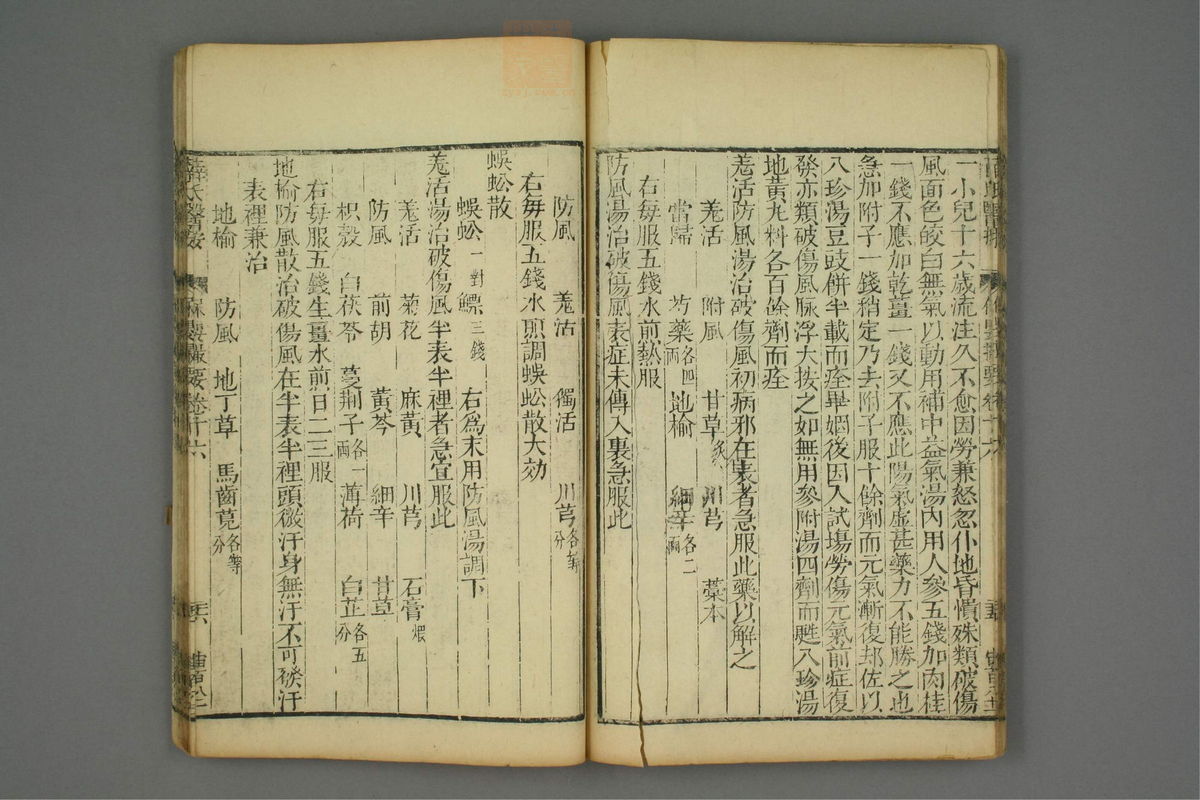 一小兒十六歲流注久不愈因勞兼怒忽仆地昏憒殊類破傷
風面色皎白無氣以動用補中益氣湯內用人參五錢加肉桂
一錢不應加乾薑一錢又不應此陽氣虛甚藥力不能勝之也
急加附子一錢稍定乃去附子服十餘劑而元氣漸復却佐以
八珍湯豆豉餅半載而痊畢婣後因入試塲勞傷元氣前症復
發亦類破傷風脉浮大按之如無用參附湯四劑而甦八珍湯
地黃丸料各百餘劑而痊
羗活防風湯治破傷風初病邪在表者急服此藥以解之
羗活 防風 甘草炙 川芎 藁本
當歸 芍藥各四兩 地榆 細辛各二兩
右每服五錢水煎熱服
防風湯治破傷風表症未傳入裏急服此
防風 羗活 獨活 川芎各等分
右每服五錢水煎調蜈蚣散大効
蜈蚣散
蜈蚣一對 鰾三錢 右爲末用防風湯調下
羗活湯治破傷風半表半裡者急宜服此
羗活 菊花 麻黃 川芎 石膏煨
防風 前胡 黃芩 細辛 甘草
枳殼 白茯苓 蔓荆子各一兩 薄荷 白芷各五分
右每服五錢生薑水煎日二三服
地榆防風散治破傷風在半表半裡頭微汗身無汗不可發汗
表裡兼治
地榆 防風 地丁草 馬齒莧各等分
薛氏醫按 保嬰撮要卷十六